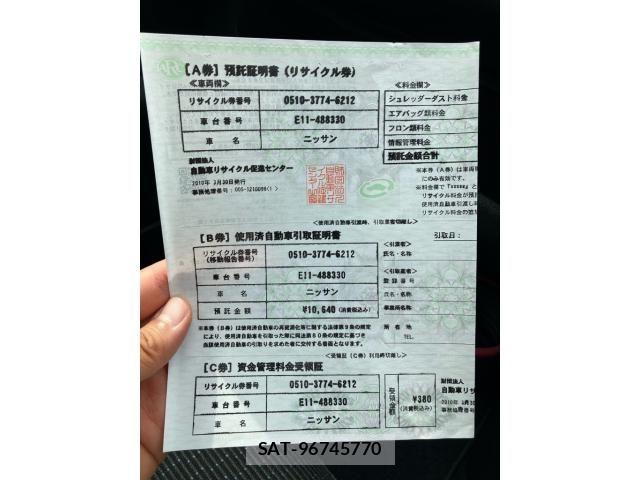 ［A券］預託証明書（リサイクル券）
≪車両欄≫
≪料金欄≫
リサイクル券番号 0510-3774-6212
シュレッダーダスト料金
車台番号 E11-488330
エアバッグ類料金
フロン類料金
車名 ニッサン
情報管理料金
預託金額合計
財団法人
自動車リサイクル促進センター
2010年 3月30日発行
事務処理番号：
＊本券（A券）は車両
にのみ有効です。
＊料金欄で
リサイクル料金が預
使用済自動車引渡し
リサイクル料金の追加
＜使用済自動車引渡時、引取業者切離し＞
［B券］使用済自動車引取証明書
引取日：
リサイクル券番号
(移動報告番号) 0510-3774-6212
＜引渡者＞
氏名・名称
車台番号 E11-488330
＜引取業者＞
登録番号
車名 ニッサン
氏名・名称
預託金額 ¥10,640(消費税込み)
事業所名称
＊本券（B券）は使用済自動車の再資源化等に関する法律第9条の規定
により、使用済自動車を引取った際に同法第80条の規定に基づき
当該使用済自動車の引取りを求めた者に交付する書面となります。
所在地
TEL.
＜受領証（C券）利用時切離し＞
［C券］資金管理料金受領証
リサイクル券番号 0510-3774-6212
車台番号 E11-488330
車名 ニッサン
受領金額 ¥380
(消費税込み)
財団法人
自動車リサ
2010年 3月30
事務処理番号
SAT-96745770